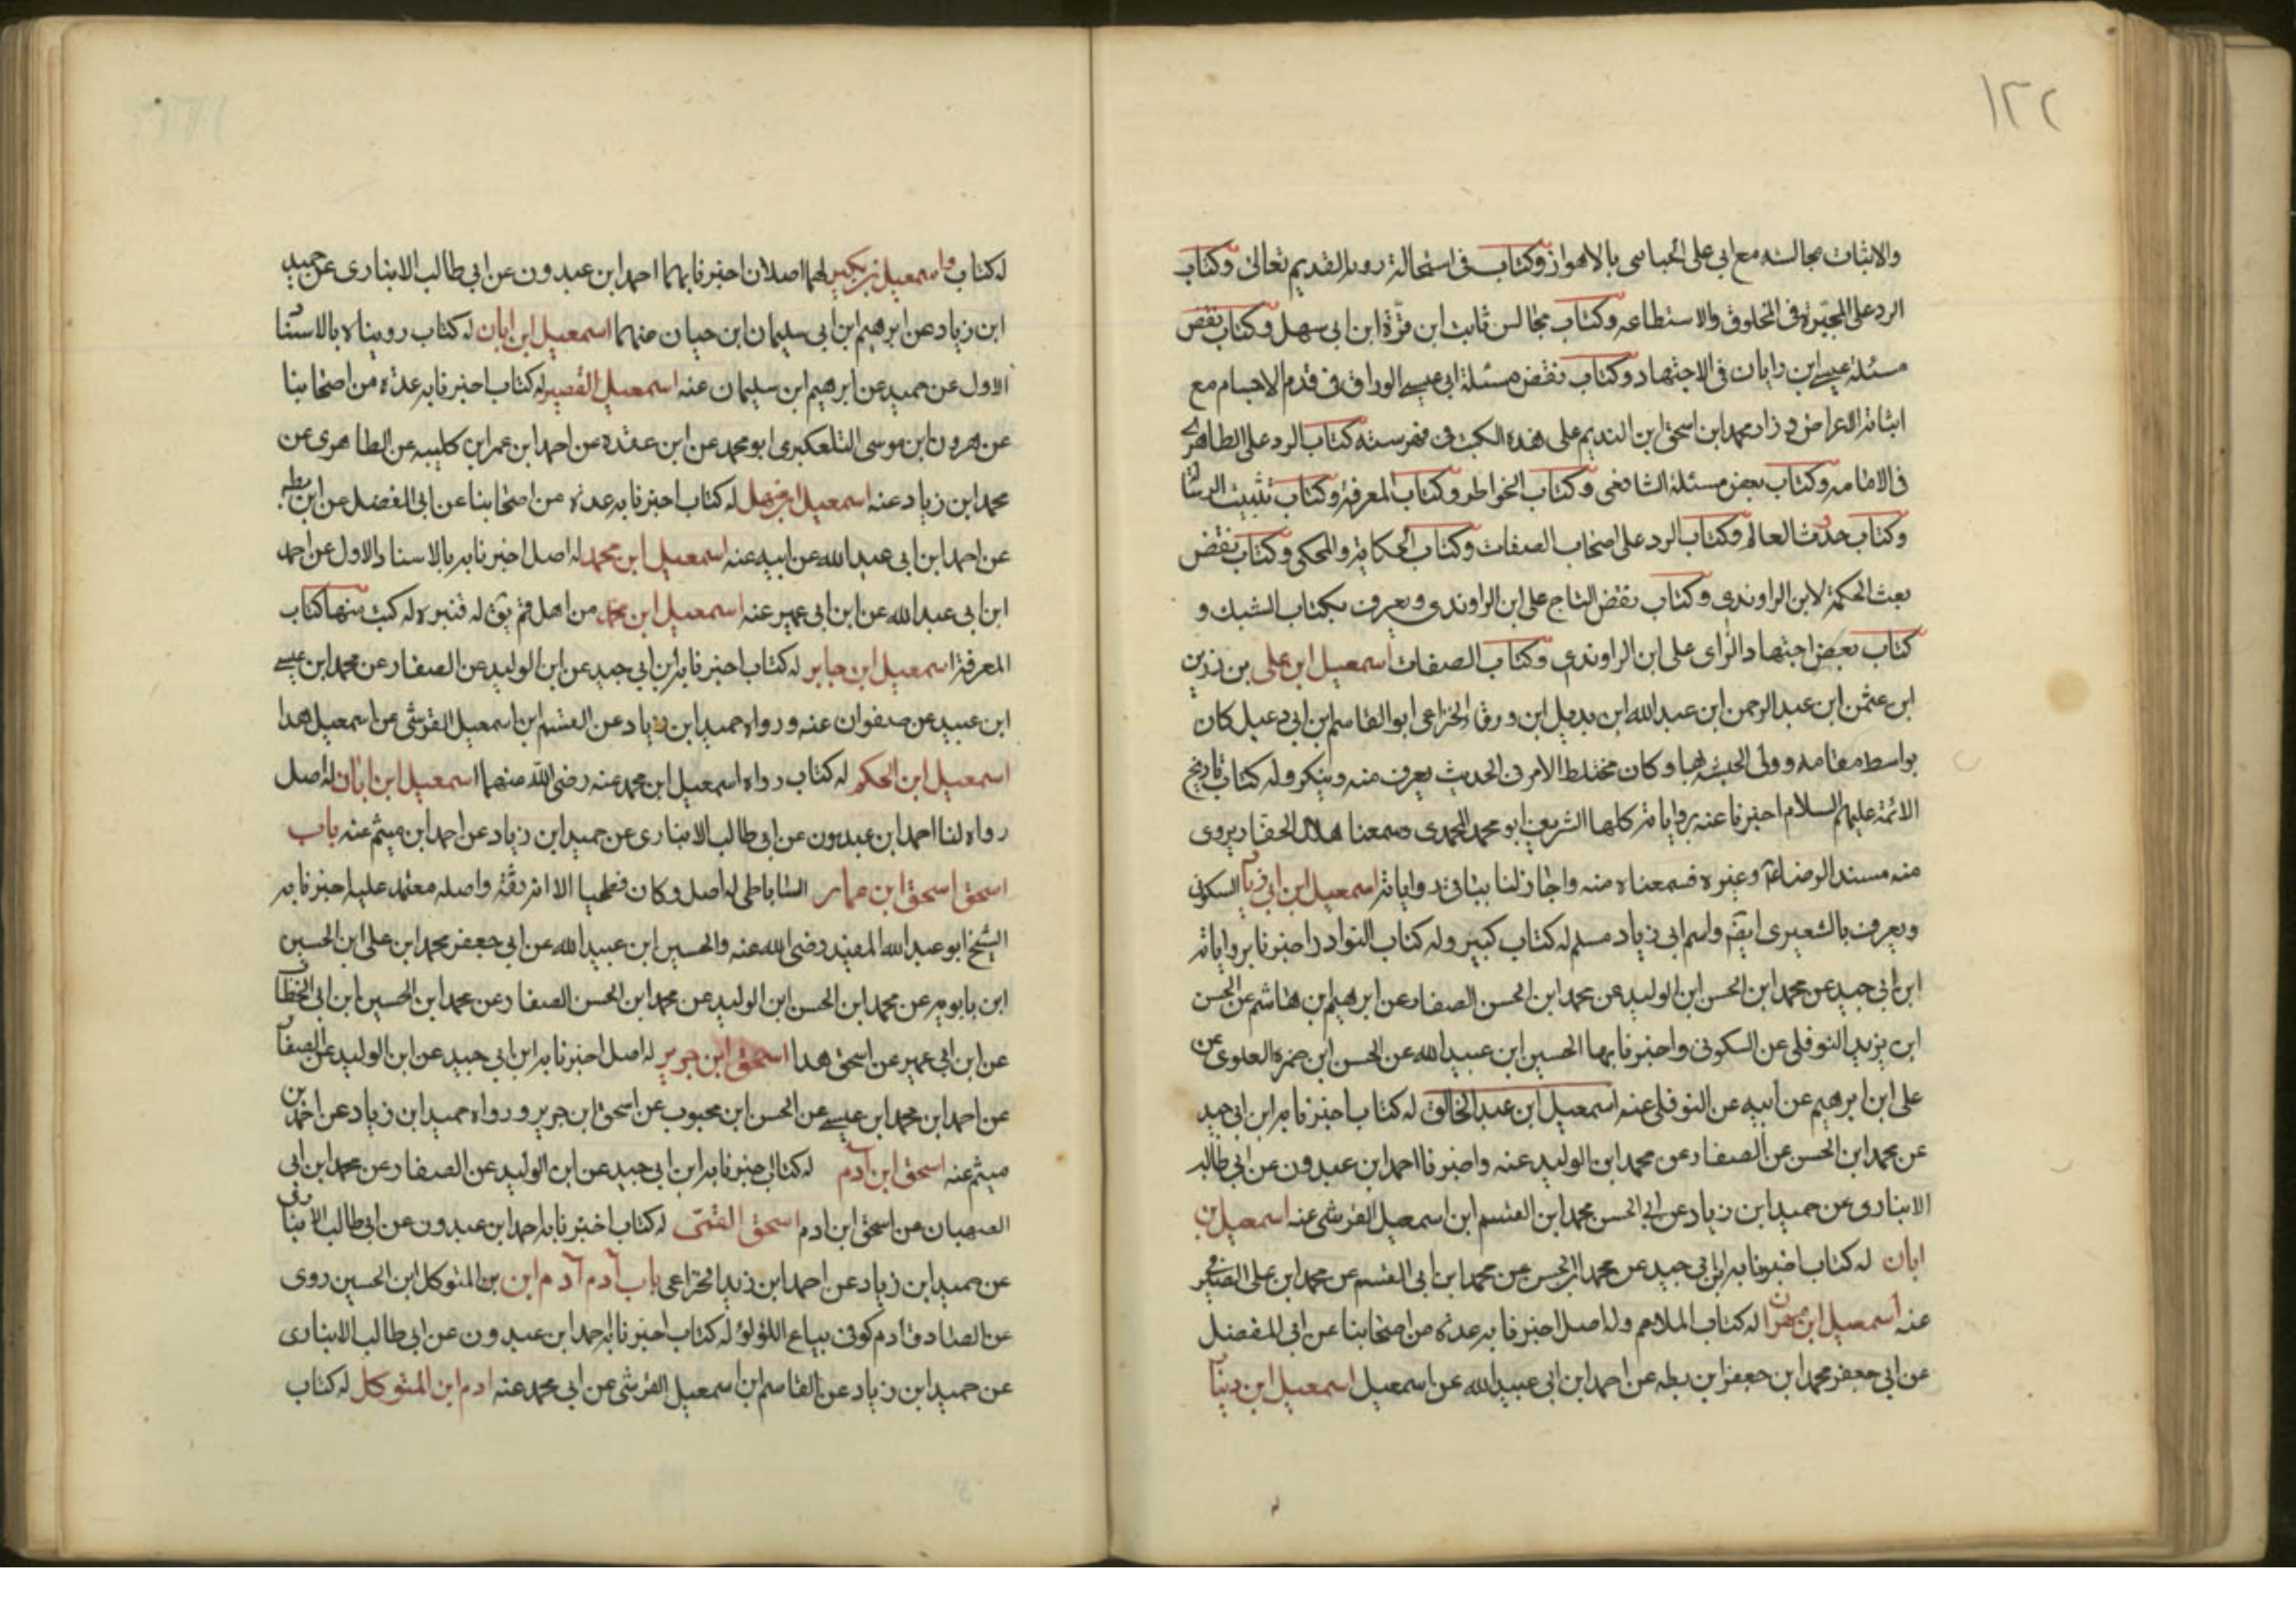 ١٢٢
والاثبات مجالسه مع ابى على الجباسى بالاهواز وكتاب فى استحالة روية القديم تعالى وكتاب
الرد على المجبرة فى المخلوق والاستطاعه وكتاب مجالس ثابت ابن قرة ابن ابى سهل وكتاب نقض
مسئلة عيسى ابن رايان فى الاجتهاد وكتاب نقض مسئلة ابى عيسى الوراق فى قدم الاجسام مع
اثباته الاعراض وزاد محمد ابن اسحق ابن النديم على هذه الكتب فى فهرسته كتاب الرد على الطاطرى
فى الامامه وكتاب بعض مسئلة الشافعى وكتاب الخواطر وكتاب المعرفة وكتاب تثبيت الرسا
وكتاب حدث العالم وكتاب الرد على اصحاب الصفات وكتاب الحكاية والمحكى وكتاب نقض
بعث الحكمة لابن الراوندى وكتاب نقض التاج على ابن الراوندى ويعرف بكتاب الشبك و
كتاب بعض اجتهاد الراى على ابن الراوندى وكتاب الصفات اسمعيل ابن على بن رزين
ابن عثمن ابن عبد الرحمن ابن عبد الله ابن بديل ابن ورقا الخزاعى ابو القاسم ابن ابى دعبل كان
بواسط مقامه وولى الحسبه بها وكان مختلط الامر فى الحديث يعرف منه وينكر وله كتاب تاريخ
الائمة عليهم السلام اخبرنا عنه برواياته كلها الشريف ابو محمد المحمدى وسمعنا هلال الحفار يروى
منه مسند الرضا وغيره فسمعناه منه واجاز لنا بباقى رواياته اسمعيل ابن ابى زيا السكونى
ويعرف بالشعيرى ايضا واسم ابى زياد مسلم له كتاب كبير وله كتاب النوادر اخبرنا برواياته
ابن ابى جيد عن محمد ابن الحسن ابن الوليد عن محمد ابن الحسن الصفار عن ابرهيم ابن هاشم عن الحسن
ابن يزيد النوفلى عن السكونى واخبرنا بها الحسين ابن عبيد الله عن الحسن ابن حمزه العلوى عن
على ابن ابرهيم عن ابيه عن النوفلى عنه اسمعيل ابن عبد الخالق له كتاب اخبرنا به ابن ابى جيد
عن محمد ابن الحسن عن الصفار عن محمد ابن الوليد عنه واخبرنا احمد ابن عبدون عن ابى طالب
الانبارى عن حميد ابن زياد عن ابى الحسن محمد ابن القسم ابن اسمعيل القرشى عنه اسمعيل بن
ابان له كتاب اخبرنا به ابن ابى جيد عن محمد ابن الحسن عن محمد ابن ابى القسم عن محمد ابن على الصيرفى
عنه اسمعيل ابن مهران له كتاب الملاحم وله اصل اخبرنا به عدة من اصحابنا عن ابى المفضل
عن ابى جعفر محمد ابن جعفر ابن بطه عن احمد ابن ابى عبيد الله عن اسمعيل اسمعيل ابن دينا
له كتاب واسمعيل بن بكير لهما اصلان اخبرنا بهما احمد ابن عبدون عن ابى طالب الانبارى عن حميد
ابن زياد عن ابرهيم ابن ابى سليمان ابن حيان عنهما اسمعيل ابن ابان له كتاب رويناه بالاسنا
الاول عن حميد عن ابرهيم ابن سليمان عنه اسمعيل القصير له كتاب اخبرنا به عدة من اصحابنا
عن هرون ابن موسى التلعكبرى ابو محمد عن ابن عقده عن احمد ابن عمر ابن كليبه عن الطاهرى عن
محمد ابن زياد عنه اسمعيل له كتاب اخبرنا به عدة من اصحابنا عن ابى المفضل عن ابن بطه
عن احمد ابن ابى عبد الله عن ابيه عنه اسمعيل ابن محمد له اصل اخبرنا به بالاسناد الاول عن احمد
ابن ابى عبد الله عن ابن ابى عمير عنه اسمعيل ابن محمد من اهل قم يق له قنبره له كتب منها كتاب
المعرفة اسمعيل ابن جابر له كتاب اخبرنا به ابن ابى جيد عن ابن الوليد عن الصفار عن محمد ابن عيسى
ابن عبيد عن صفوان عنه ورواه حميد ابن زياد عن القسم ابن اسمعيل القرشى عن اسمعيل هذا
اسمعيل ابن الحكم له كتاب رواه اسمعيل ابن محمد عنه رضى الله عنهما اسمعيل ابن ابان له اصل
رواه لنا احمد ابن عبدون عن ابى طالب الانبارى عن حميد ابن زياد عن احمد ابن ميثم عنه باب
اسحق اسحق ابن عمار الساباطى له اصل وكان فطحيا الا انه ثقة واصله معتمد عليه اخبرنا به
الشيخ ابو عبد الله المفيد رضى الله عنه والحسين ابن عبيد الله عن ابى جعفر محمد ابن على ابن الحسين
ابن بابويه عن محمد ابن الحسن ابن الوليد عن محمد ابن الحسن الصفار عن محمد ابن الحسين ابن ابى الخطا
عن ابن ابى عمير عن اسحق هذا اسحق ابن جرير له اصل اخبرنا به ابن ابى جيد عن ابن الوليد عن الصفا
عن احمد ابن محمد ابن عيسى عن الحسن ابن محبوب عن اسحق ابن جرير ورواه حميد ابن زياد عن احمد بن
ميثم عنه اسحق ابن آدم له كتاب اخبرنا به ابن ابى جيد عن ابن الوليد عن الصفار عن محمد ابن ابى
الصهبان عن اسحق ابن ادم اسحق القمى له كتاب اخبرنا به احمد ابن عبدون عن ابى طالب الانبا
عن حميد ابن زياد عن احمد ابن زيد الخزاعى باب آدم آدم ابن بن المتوكل ابن الحسين روى
عن الصادق ادم كوفى بياع اللؤلؤ له كتاب اخبرنا به احمد ابن عبدون عن ابى طالب الانبارى
عن حميد ابن زياد عن القاسم ابن اسمعيل القرشى عن ابى محمد عنه ادم ابن المتوكل له كتاب